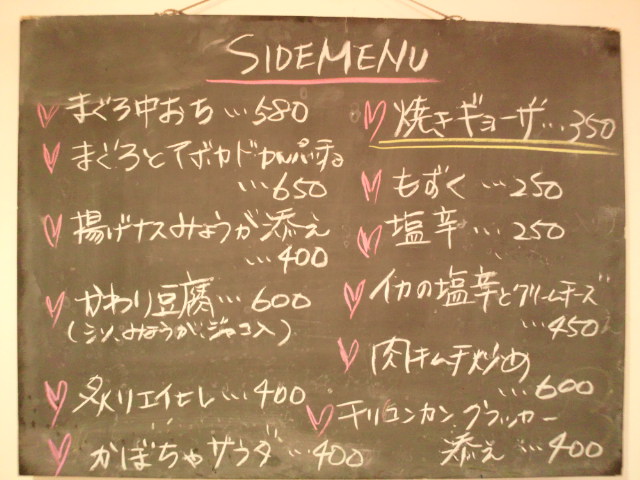 SIDEMENU
まぐろ中おち…580
まぐろとアボカドカルパッチョ
…650
揚げナスみょうが添え
…400
かわり豆腐…600
(シソ、みょうが、ジャコ入)
炙りエイヒレ…400
かぼちゃサラダ…400
焼きギョーザ…350
もずく…250
塩辛…250
イカの塩辛とクリームチーズ
…450
肉キムチ炒め
…600
チリコンカンクラッカー
添え…400